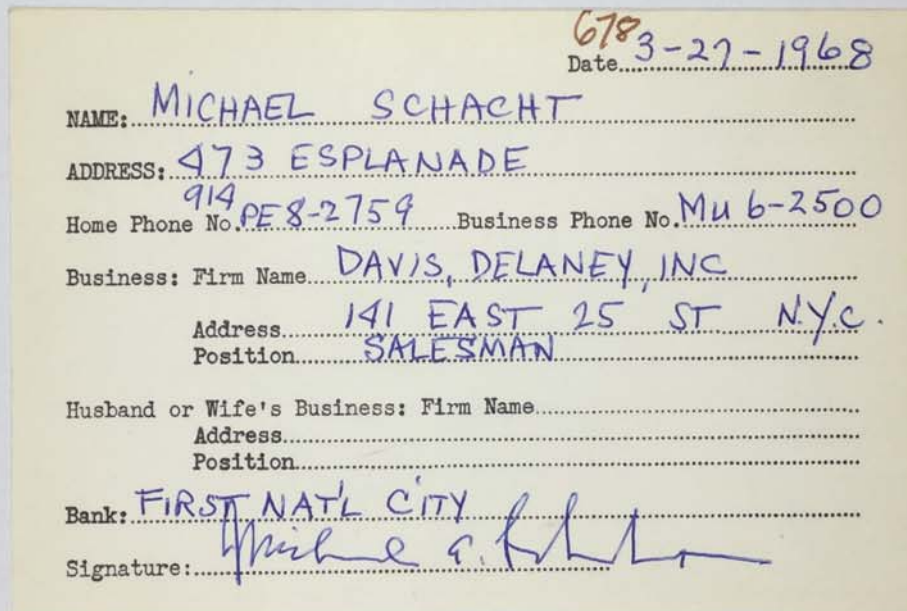 678
Date 3-27-1968
NAME: MICHAEL SCHACHT
ADDRESS: 473 ESPLANADE
914
Home Phone No. PE 8-2759 Business Phone No. MU 6-2500
Business: Firm Name DAVIS, DELANEY, INC
Address 141 EAST 25 ST N.Y.C.
Position SALESMAN
Husband or Wife's Business: Firm Name
Address
Position
Bank: FIRST NAT'L CITY
Signature: Michael